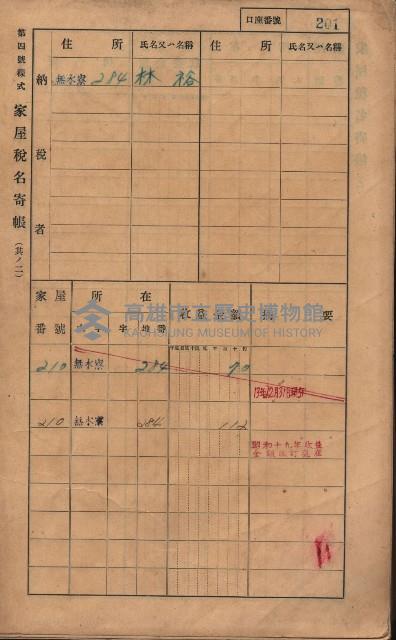 口座番號 201
第四號樣式 家屋稅名寄帳 (其ノ二)
納稅者
住所 氏名又ハ名稱 住所 氏名又ハ名稱
無水寮 284 林裕
家屋番號 所在 收益金額 摘要
字 地番
210 無水寮 284 90
210 無水寮 284 112
昭和十九年收益
金額改訂
高雄市立歷史博物館
KAOHSIUNG MUSEUM OF HISTORY